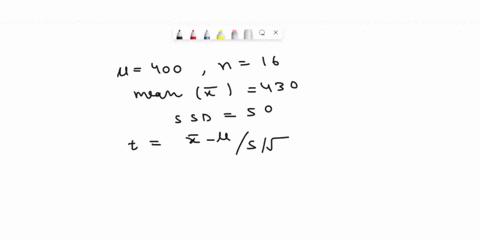 μ = 400 , n = 16
mean (x̄) = 430
SSD = 50
t = x̄ - μ / s / √